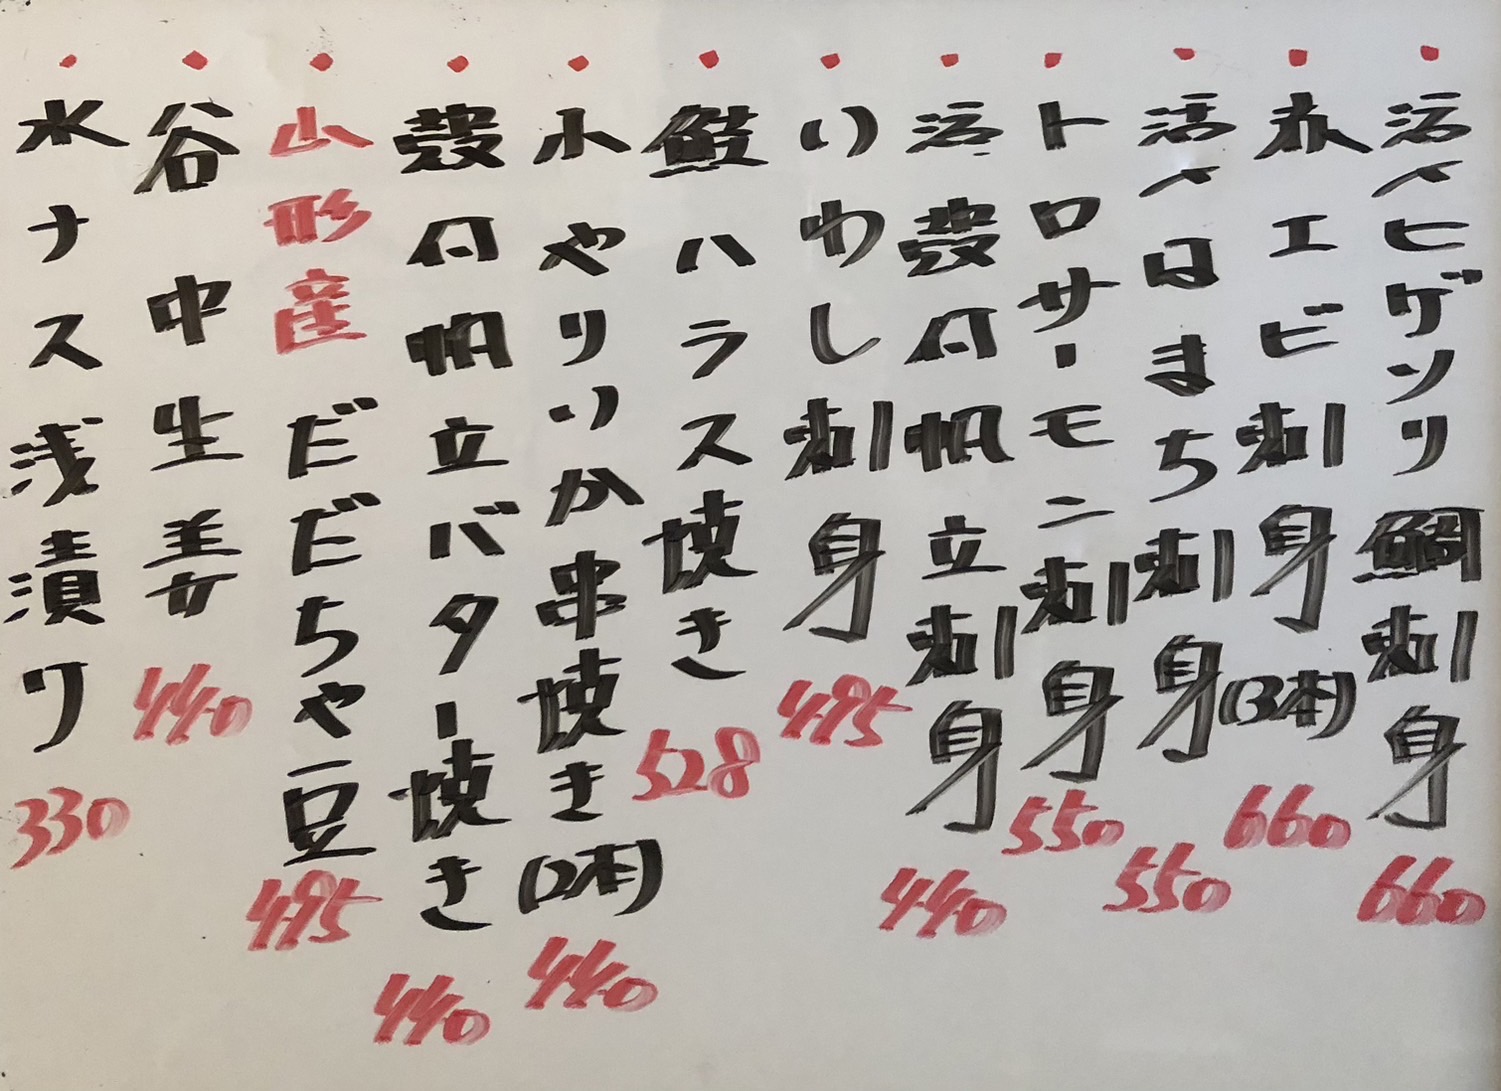 活〆ヒゲソリ鯛刺身 660
赤エビ刺身(3本) 660
活〆はまち刺身 550
トロサーモン刺身 550
活殻付帆立刺身 440
いわし刺身 495
鮭ハラス焼き 528
小やりいか串焼き(2本) 440
殻付帆立バター焼き 440
山形産だだちゃ豆 495
谷中生姜 440
水ナス浅漬り 330